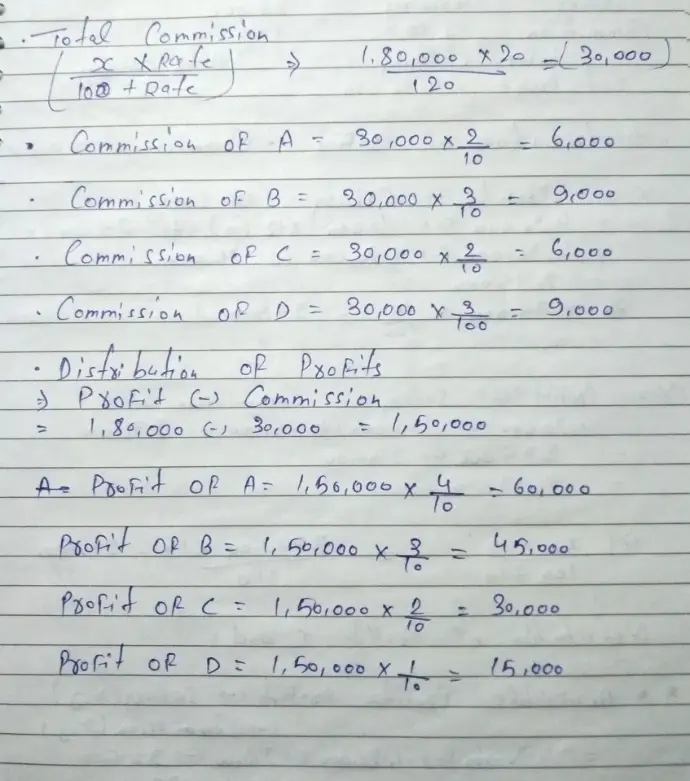 . Total Commission
( x × Rate / 100 + Rate ) ⇒ 1,80,000 × 20 / 120 = (30,000)
• Commission OF A = 30,000 × 2/10 = 6,000
. Commission OF B = 30,000 × 3/10 = 9,000
. Commission OF C = 30,000 × 2/10 = 6,000
. Commission OF D = 30,000 × 3/100 = 9,000
. Distribution OF Profits
⇒ Profit (-) Commission
= 1,80,000 (-) 30,000 = 1,50,000
A= Profit OF A = 1,50,000 × 4/10 = 60,000
Profit OF B = 1,50,000 × 3/10 = 45,000
Profit OF C = 1,50,000 × 2/10 = 30,000
Profit OF D = 1,50,000 × 1/10 = 15,000